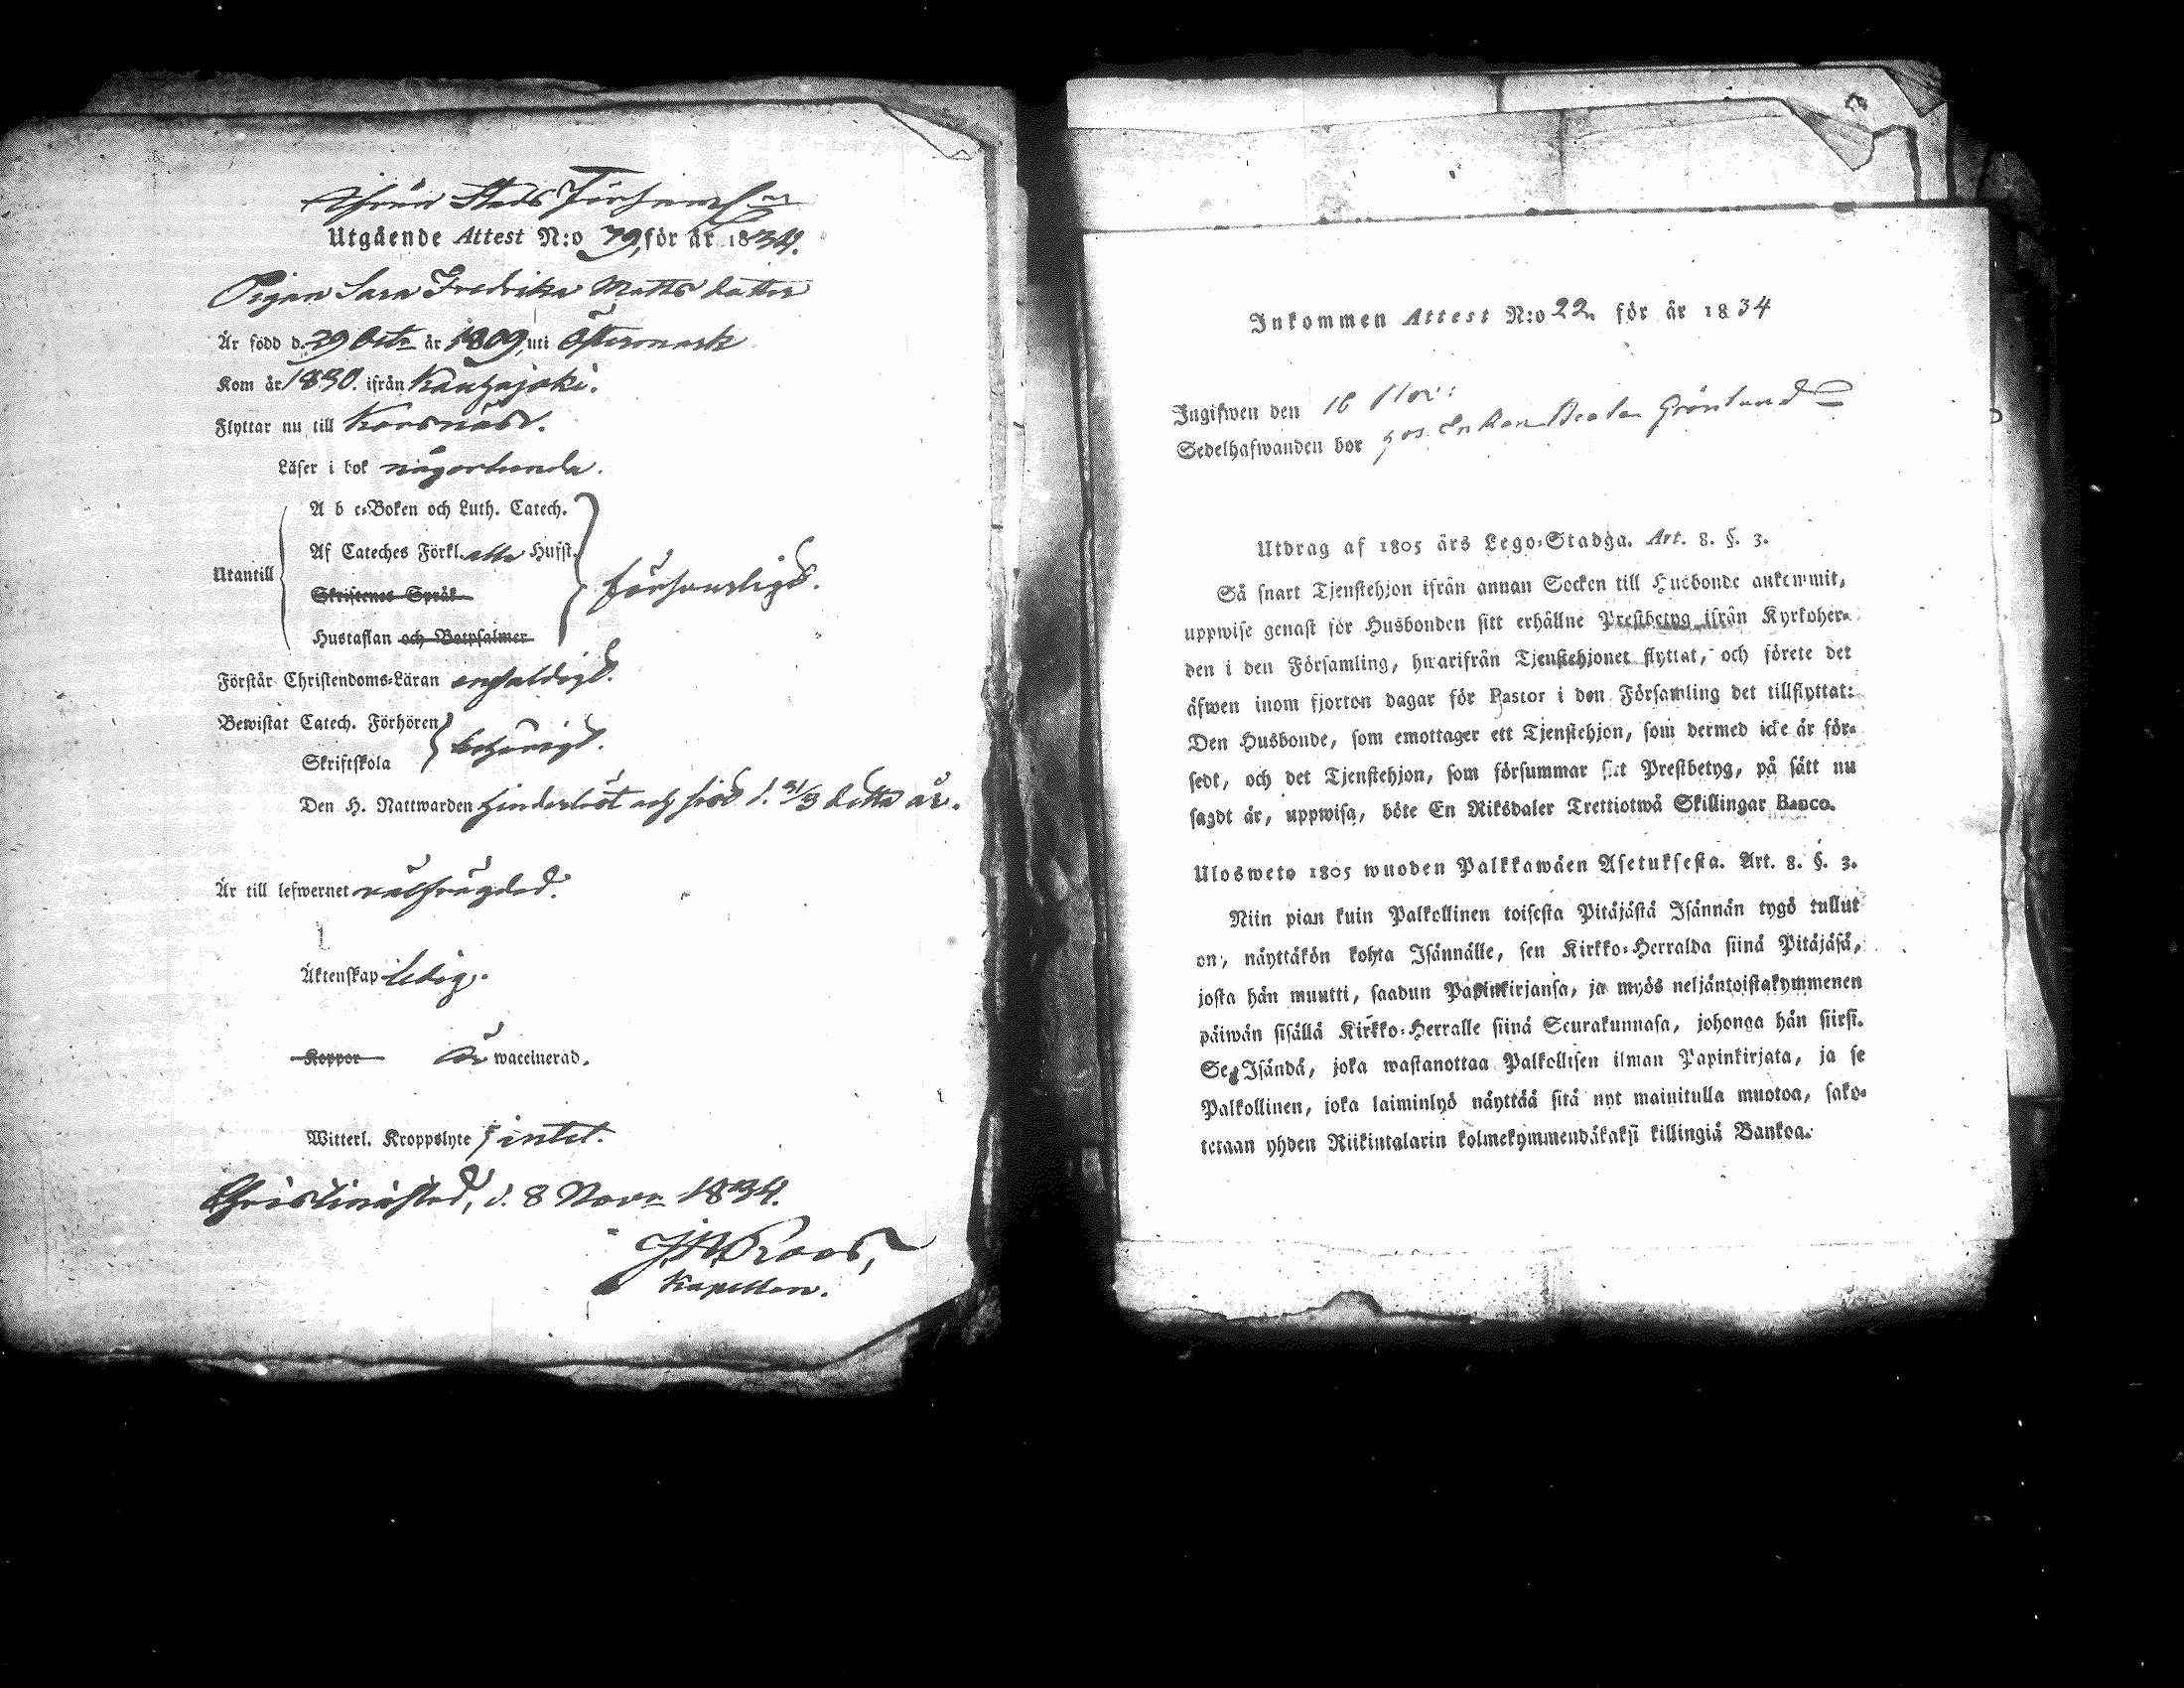 ifrån Stads Församl:n
Utgående Attest N:o 79, för år 1834.
Pigan Sara Fredrika Mattsdotter
Är född d. 29 Octr år 1809, uti Östermark
Kom år 1830. ifrån Kauhajoki.
Flyttar nu till Korsnäs.
Läser i bok någorlunda.
A b c-Boken och Luth. Catech.
Af Cateches Förkl. alla Hufst.
Utantill
försvarligt.
Skriftenes Språk
Hustaflan och Botpsalmer
Förstår Christendoms-Läran enfaldigt.
Bewistat Catech. Förhören
behörigt.
Skriftskola
Den H. Nattwarden hinderlöst och sist d. 31/3 detta år.
Är till lefwernet välfrägdad.
Äktenskap ledig.
Koppor är waccinerad.
Witterl. Kroppslyte intet.
Christinestad, d. 8 Novr 1834.
Roos,
Kapellan.
Inkommen Attest N:o 22 för år 1834
Ingifwen den 16 Nov:
Sedelhafwanden bor hos Enkan Beata Grönlund
Utdrag af 1805 års Lego-Stadga. Art. 8. §. 3.
Så snart Tjenstehjon ifrån annan Socken till Husbonde ankommit,
uppwise genast för Husbonden sitt erhållne Prestbetyg ifrån Kyrkoher-
den i den Församling, hwarifrån Tjenstehjonet flyttat, och förete det
äfwen inom fjorton dagar för Pastor i den Församling det tillflyttat:
Den Husbonde, som emottager ett Tjenstehjon, som dermed icke är för-
sedt, och det Tjenstehjon, som försummar sitt Prestbetyg, på sätt nu
sagdt är, uppwisa, böte En Riksdaler Trettiotwå Skillingar Banco.
Ulosweto 1805 wuoden Palkkawäen Asetuksesta. Art. 8. §. 3.
Niin pian kuin Palkollinen toisesta Pitäjästä Isännän tygö tullut
on, näyttäkön kohta Isännälle, sen Kirkko-Herralda siinä Pitäjäsä,
josta hän muutti, saadun Papinkirjansa, ja myös neljäntoistakymmenen
päiwän sisällä Kirkko-Herralle siinä Seurakunnasa, johonga hän siirsi.
Se Isändä, joka wastanottaa Palkollisen ilman Papinkirjata, ja se
Palkollinen, joka laiminlyö näyttää sitä nyt mainitulla muotoa, sako-
tetaan yhden Riikintalarin kolmekymmendäkaksi killingiä Bankoa.